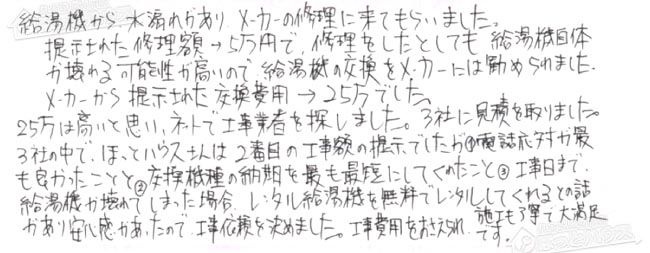 給湯機から水漏れがあり、メーカーの修理に来てもらいました。
提示された修理額→5万円で、修理をしたとしても給湯機自体
が壊れる可能性が高いので給湯機の交換をメーカーには勧められました。
メーカーから提示された交換費用→25万でした。
25万は高いと思い、ネットで工事業者を探しました。3社に見積を取りました。
3社の中で、ほっとハウスさんは2番目の工事額の提示でしたが①電話応対が最
も良かったことと②交換機種の納期を最も最短にしてくれたこと③工事日まで、
給湯機が壊れてしまった場合、レンタル給湯機を無料でレンタルしてくれるとの話
があり安心感があったので、工事依頼を決めました。工事費用をおさえられ、施工も丁寧で大満足
です。